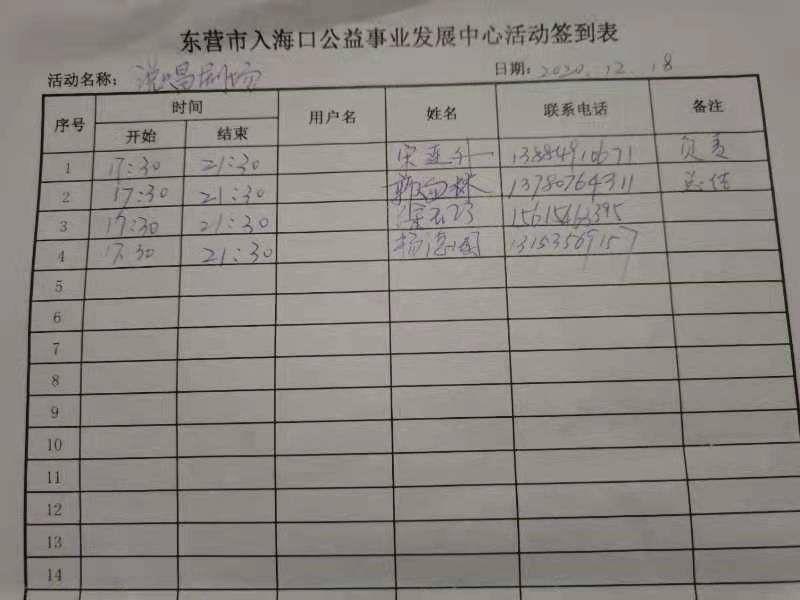 东营市入海口公益事业发展中心活动签到表
活动名称: 说唱剧场 日期: 2020.12.18
序号 时间 用户名 姓名 联系电话 备注
开始 结束
1 17:30 21:30 宋亚升 13884910671 负责
2 17:30 21:30 13780764311 总结
3 17:30 21:30 15615463395
4 17:30 21:30 杨德国 13153569157
5
6
7
8
9
10
11
12
13
14